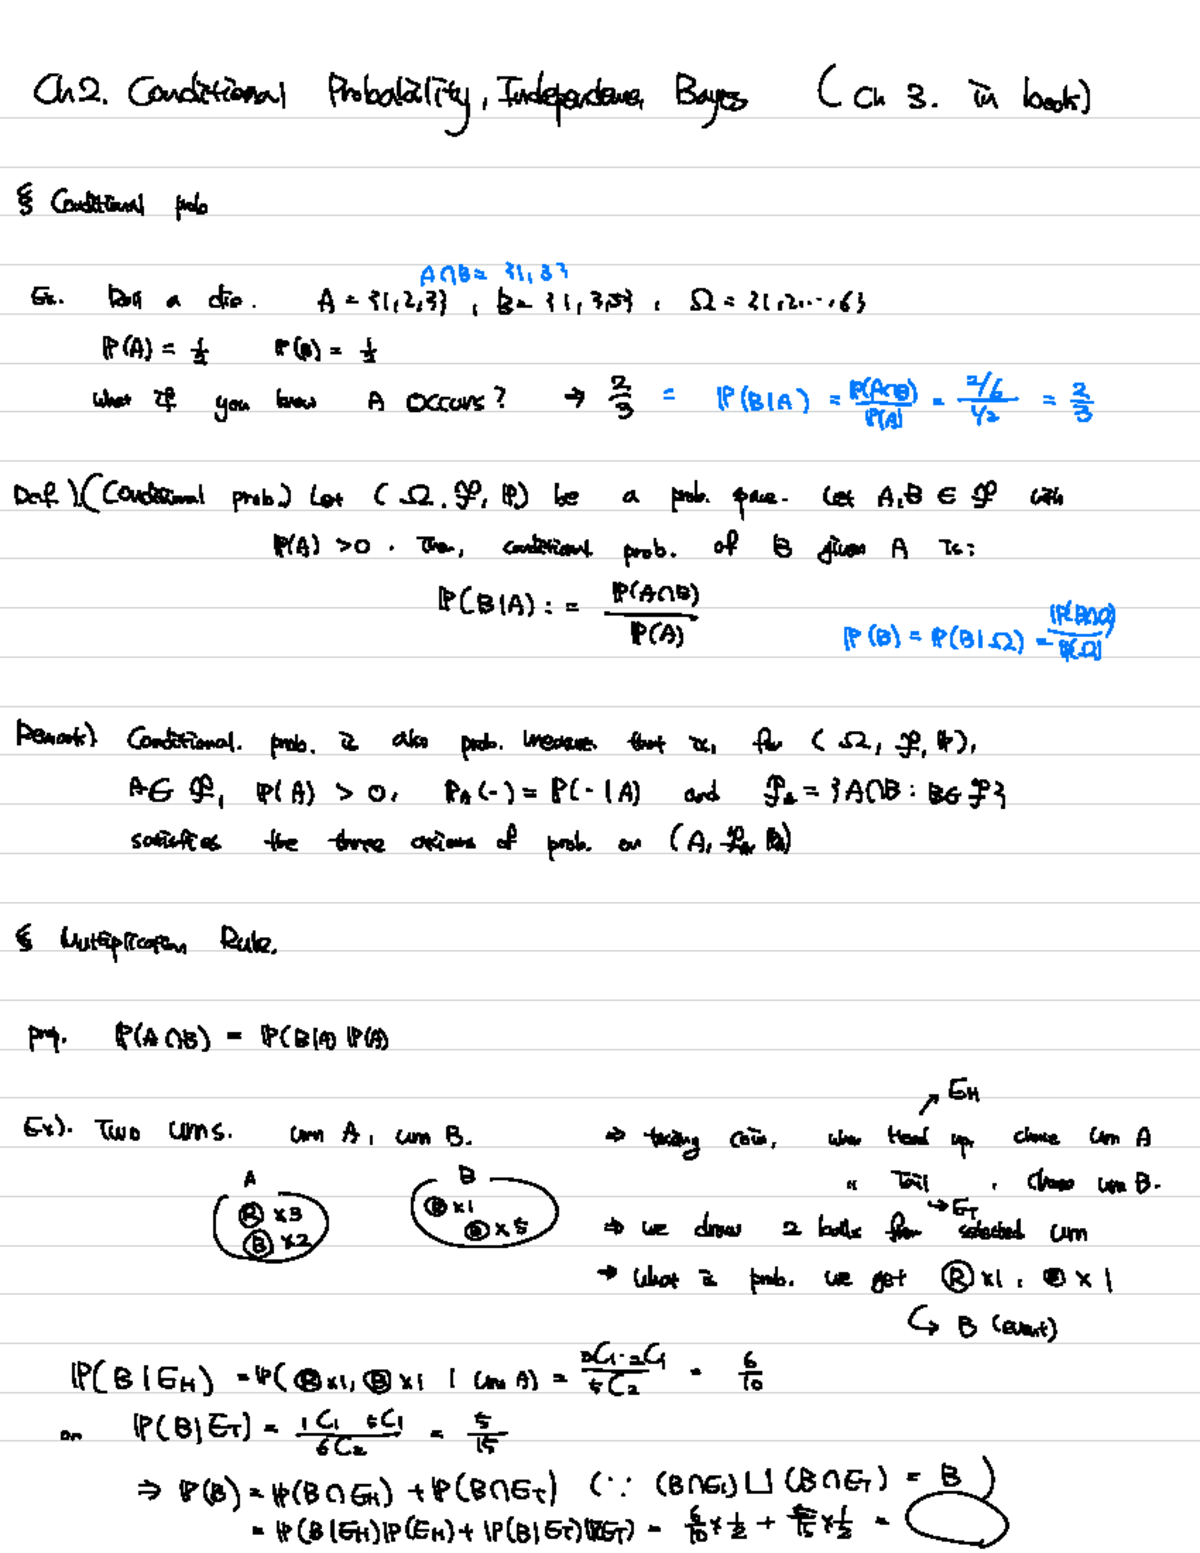 Ch2. Conditional Probability, Independence, Bayes (Ch 3. in book)
§ Conditional prob
A∩B = {1, 3}
Ex. Roll a die. A = {1,2,3}, B = {1,3,5}, Ω = {1,2,...,6}
ℙ(A) = 1/2 ℙ(B) = 1/2
What if you know A occurs? → 2/3 = ℙ(B|A) = ℙ(A∩B)/ℙ(A) = (2/6)/(1/2) = 2/3
Def.) (Conditional prob.) Let (Ω, ℱ, ℙ) be a prob. space. Let A, B ∈ ℱ with
ℙ(A) > 0. Then, conditional prob. of B given A is:
ℙ(B|A) := ℙ(A∩B)/ℙ(A)
ℙ(B) = ℙ(B|Ω) = ℙ(B∩Ω)/ℙ(Ω)
Remark) Conditional. prob. is also prob. measure. that is, for (Ω, ℱ, ℙ),
A ∈ ℱ, ℙ(A) > 0, ℙ_A(·) = ℙ(·|A) and ℱ_A = {A∩B : B∈ℱ}
satisfies the three axioms of prob. on (A, ℱ_A, ℙ_A)
§ Multiplication Rule.
prop. ℙ(A∩B) = ℙ(B|A) ℙ(A)
↗ E_H
Ex). Two urns. urn A, urn B. ⇒ tossing coin, when Head up, choose urn A
A B
〃 Tail , choose urn B.
↳ E_T
Ⓡ ×3 Ⓡ ×1
Ⓑ ×2 Ⓑ ×5
⇒ we draw 2 balls from selected urn
→ What is prob. we get Ⓡ×1, Ⓑ×1
↳ B (event)
ℙ(B|E_H) = ℙ(Ⓡ×1, Ⓑ×1 | urn A) = ₃C₁·₂C₁/₅C₂ = 6/10
ℙ(B|E_T) = ₁C₁ ₅C₁/₆C₂ = 5/15
⇒ ℙ(B) = ℙ(B∩E_H) + ℙ(B∩E_T) (∵ (B∩E_H) ⊔ (B∩E_T) = B)
= ℙ(B|E_H)ℙ(E_H) + ℙ(B|E_T)ℙ(E_T) = 6/10 × 1/2 + 5/15 × 1/2 =